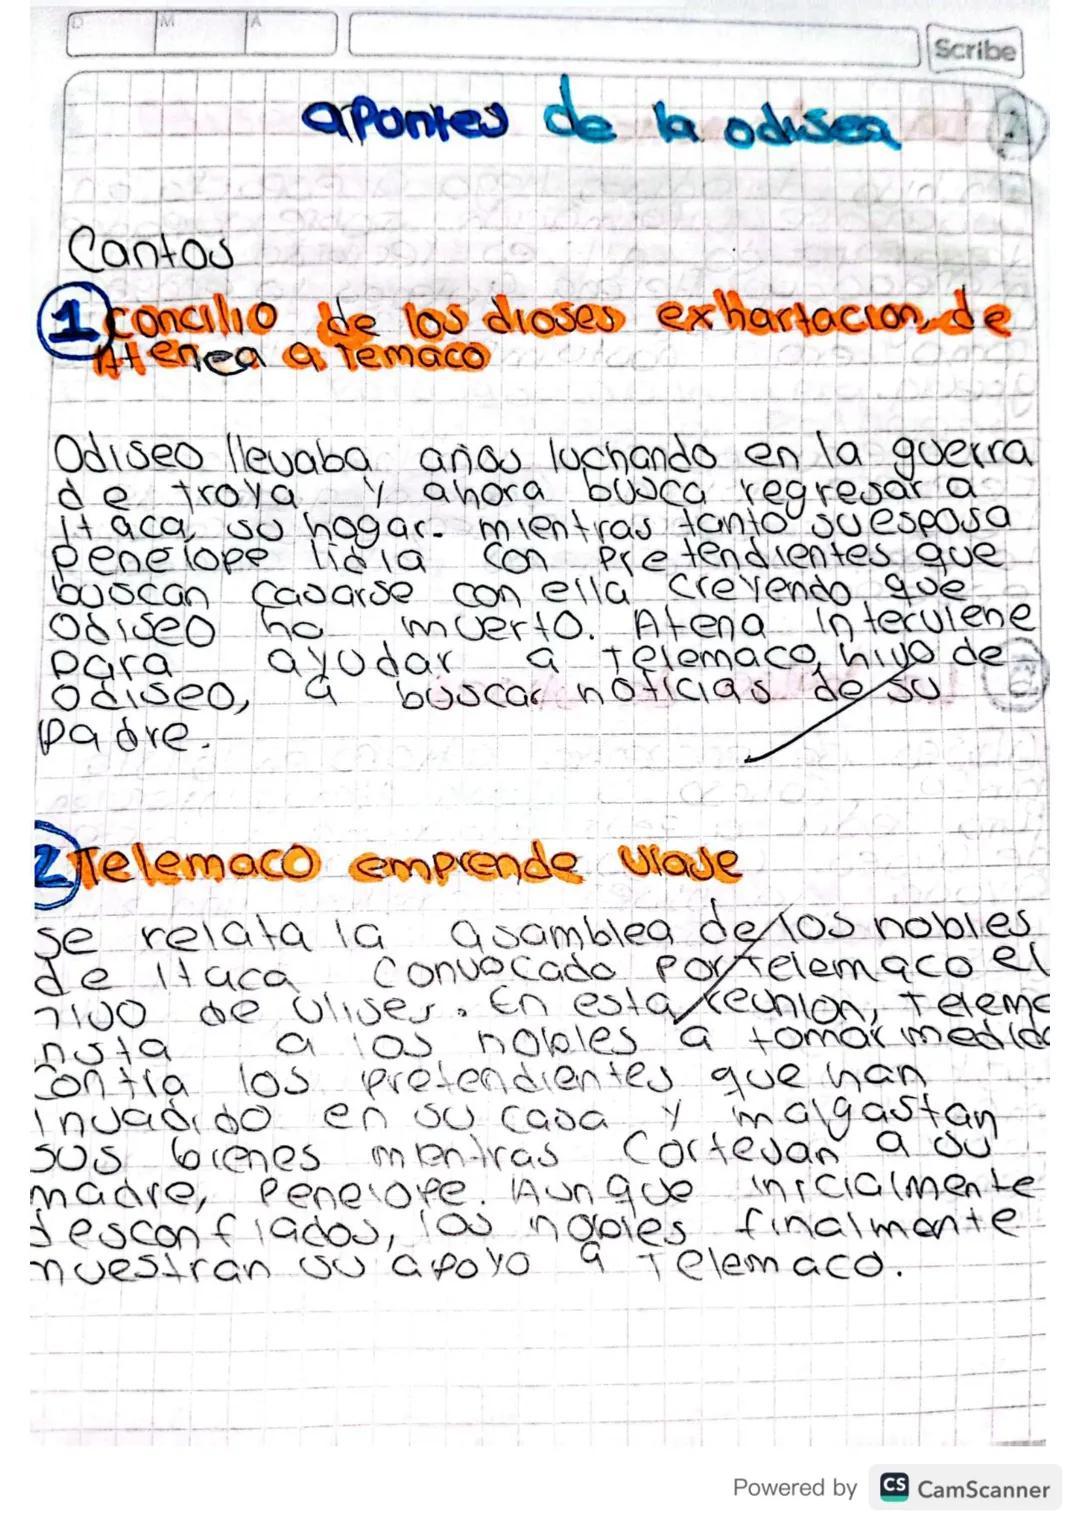 D M A
Scribe
apontes de la odisea
Cantos
1 concilio de los dioses exhartacion de
Atenea a Temaco
Odiseo llevaba años luchando en la guerra
de troya y ahora busca regresar a
Itaca, su hogar. mientras tanto su esposa
penelope lidia con pretendientes que
buscan casarse con ella creyendo que
Odiseo ha muerto. Atena interviene
para ayudar a Telemaco, hijo de
odiseo, a buscar noticias de su
padre.
2 Telemaco emprende viaje
se relata la asamblea de los nobles
de Itaca convocado por telemaco el
hijo de Ulises. En esta reunion, Telema
nsta a los nobles a tomar medida
contra los pretendientes que han
invadido en su casa y malgastan
sus bienes mientras cortejan a su
madre, Penelope. Aunque inicialmente
desconfiados, los nobles finalmente
muestran su apoyo a Telemaco.
Powered by CS CamScanner